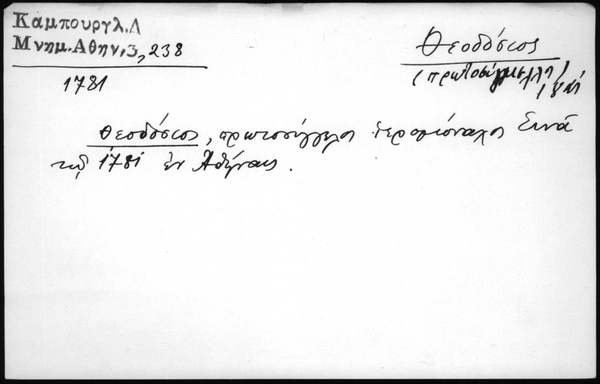 Καμπουργλ.Δ
Μνημ.Αθην.3, 238
1781
Θεοδόσιος
(πρωτοσύγκελλος)
Θεοδόσιος, πρωτοσύγγελος ἱερομόναχος Σινᾶ
τῷ 1781 ἐν Ἀθήναις.